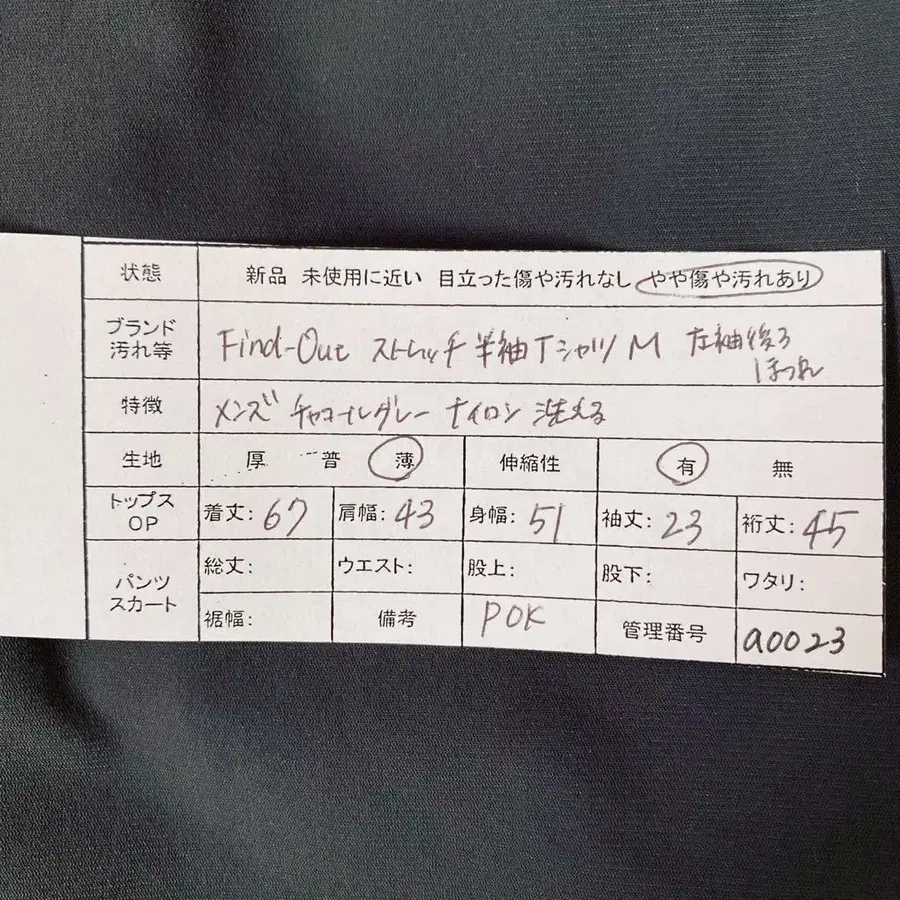 状態 新品 未使用に近い 目立った傷や汚れなし やや傷や汚れあり
ブランド
汚れ等
Find-Out ストレッチ 半袖Tシャツ M 左袖後ろ
ほつれ
特徴 メンズ チャコールグレー ナイロン 洗える
生地 厚 普 薄 伸縮性 有 無
トップス
OP
着丈: 67 肩幅: 43 身幅: 51 袖丈: 23 裄丈: 45
パンツ
スカート
総丈: ウエスト: 股上: 股下: ワタリ:
裾幅: 備考 POK 管理番号 a0023